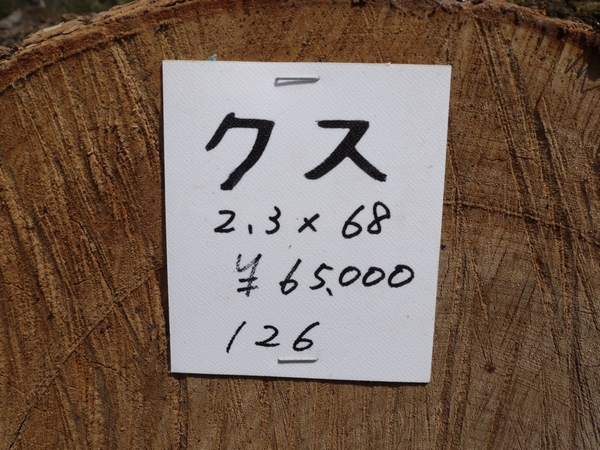 クス
2.3 × 68
¥ 65,000
126